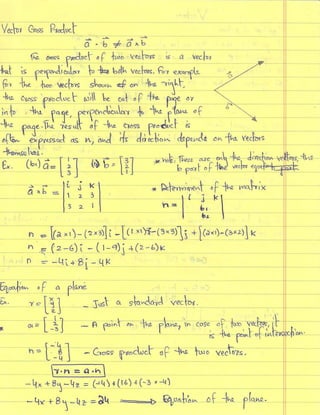 Vector Cross Product
a⃗ · b⃗ ≠ a⃗ × b⃗
The cross product of two vectors is a vector
that is perpendicular to the both vectors. For example,
for the two vectors shown on the right,
the cross product will be out of the page or
into the page, perpendicular to the plane of
the page. The result of the cross product is
often expressed as n, and its direction depends on the vectors
themselves.
Ex. a⃗ = [1 2 3] b⃗ = [3 2 1] * note: These are only the direction vectors, this
b part of the vector equation
a⃗ × b⃗ = | i j k | * Determinent of the matrix
| 1 2 3 |
| 3 2 1 |
n = | i j k
b₁
b₂
n = [(2×1) - (2×3)]i - [(1×1) - (3×3)]j + [(2×1) - (3×2)]k
n = (2-6)i - (1-9)j + (2-6)k
n = -4i + 8j - 4k
Equation of a plane
Ex. r = [x y z] - Just a standard vector.
a = - A point on the plane, in case of two vectors, it
is the point of intersection.
n = [-4 8 -4] - Cross product of the two vectors.
r·n = a·n
-4x + 8y - 4z = (-4) + (16) + (-3 × -4)
-4x + 8y - 4z = 24 ⟹ Equation of the plane.